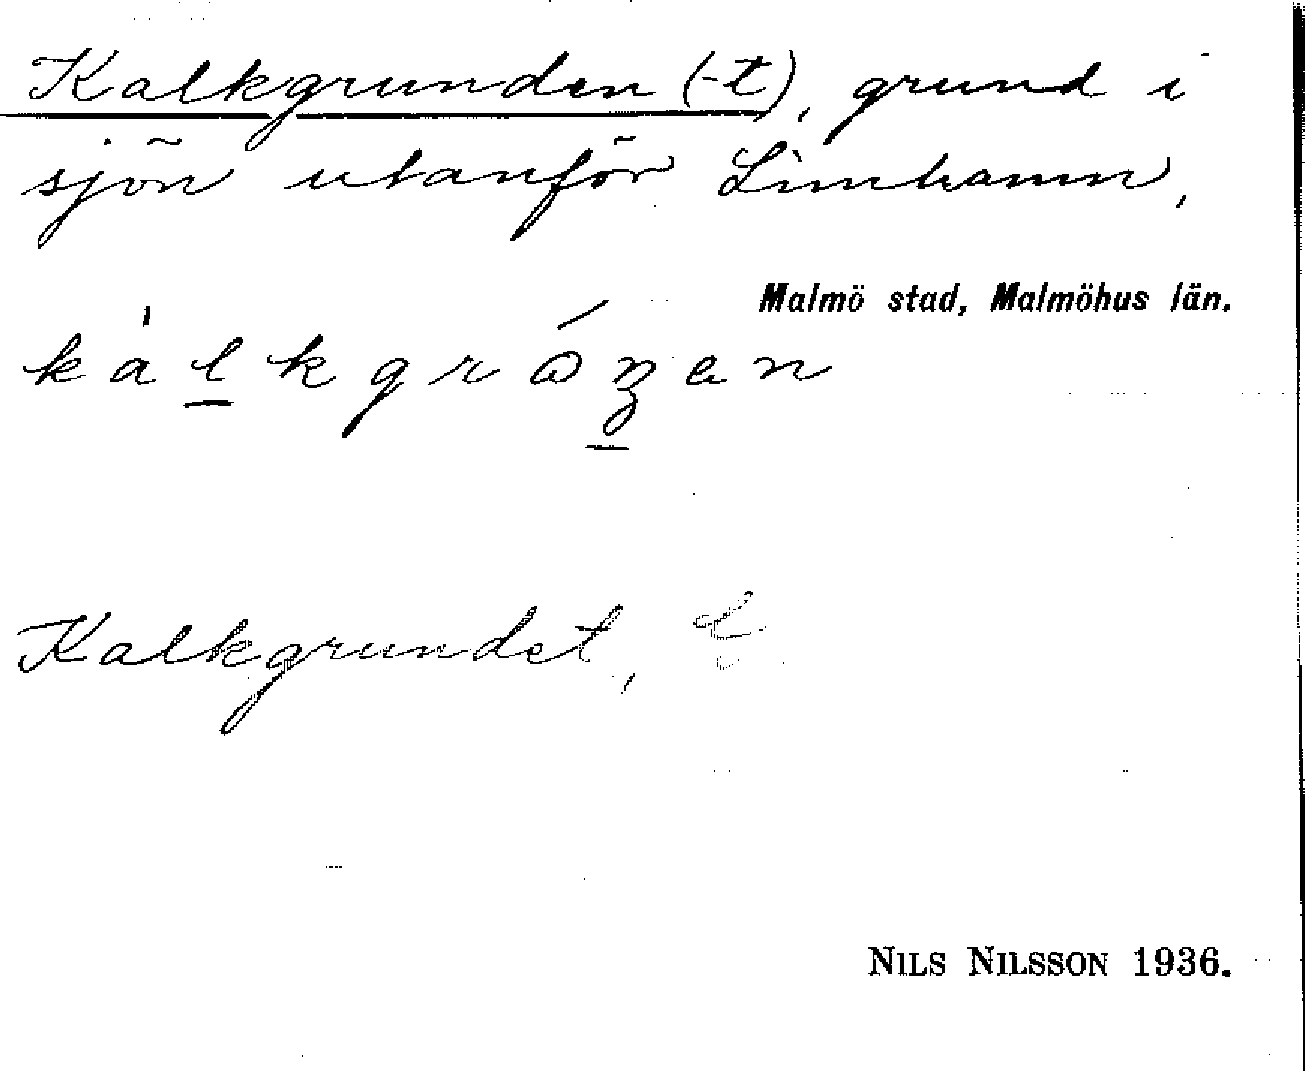 Kalkgrunden (-t), grund i
sjön utanför Limhamn,
Malmö stad, Malmöhus län.
Kalkgrundet,
NILS NILSSON 1936.